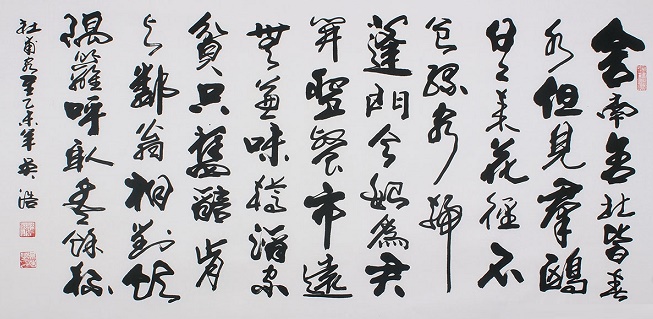 舍南舍北皆春
水但見羣鷗
日日来花徑不
曾緣客掃
蓬門今始為君
開盤餐市遠
無兼味樽酒家
貧只舊醅肯
与鄰翁相對飲
隔籬呼取盡餘杯
杜甫客至乙未年吴浩